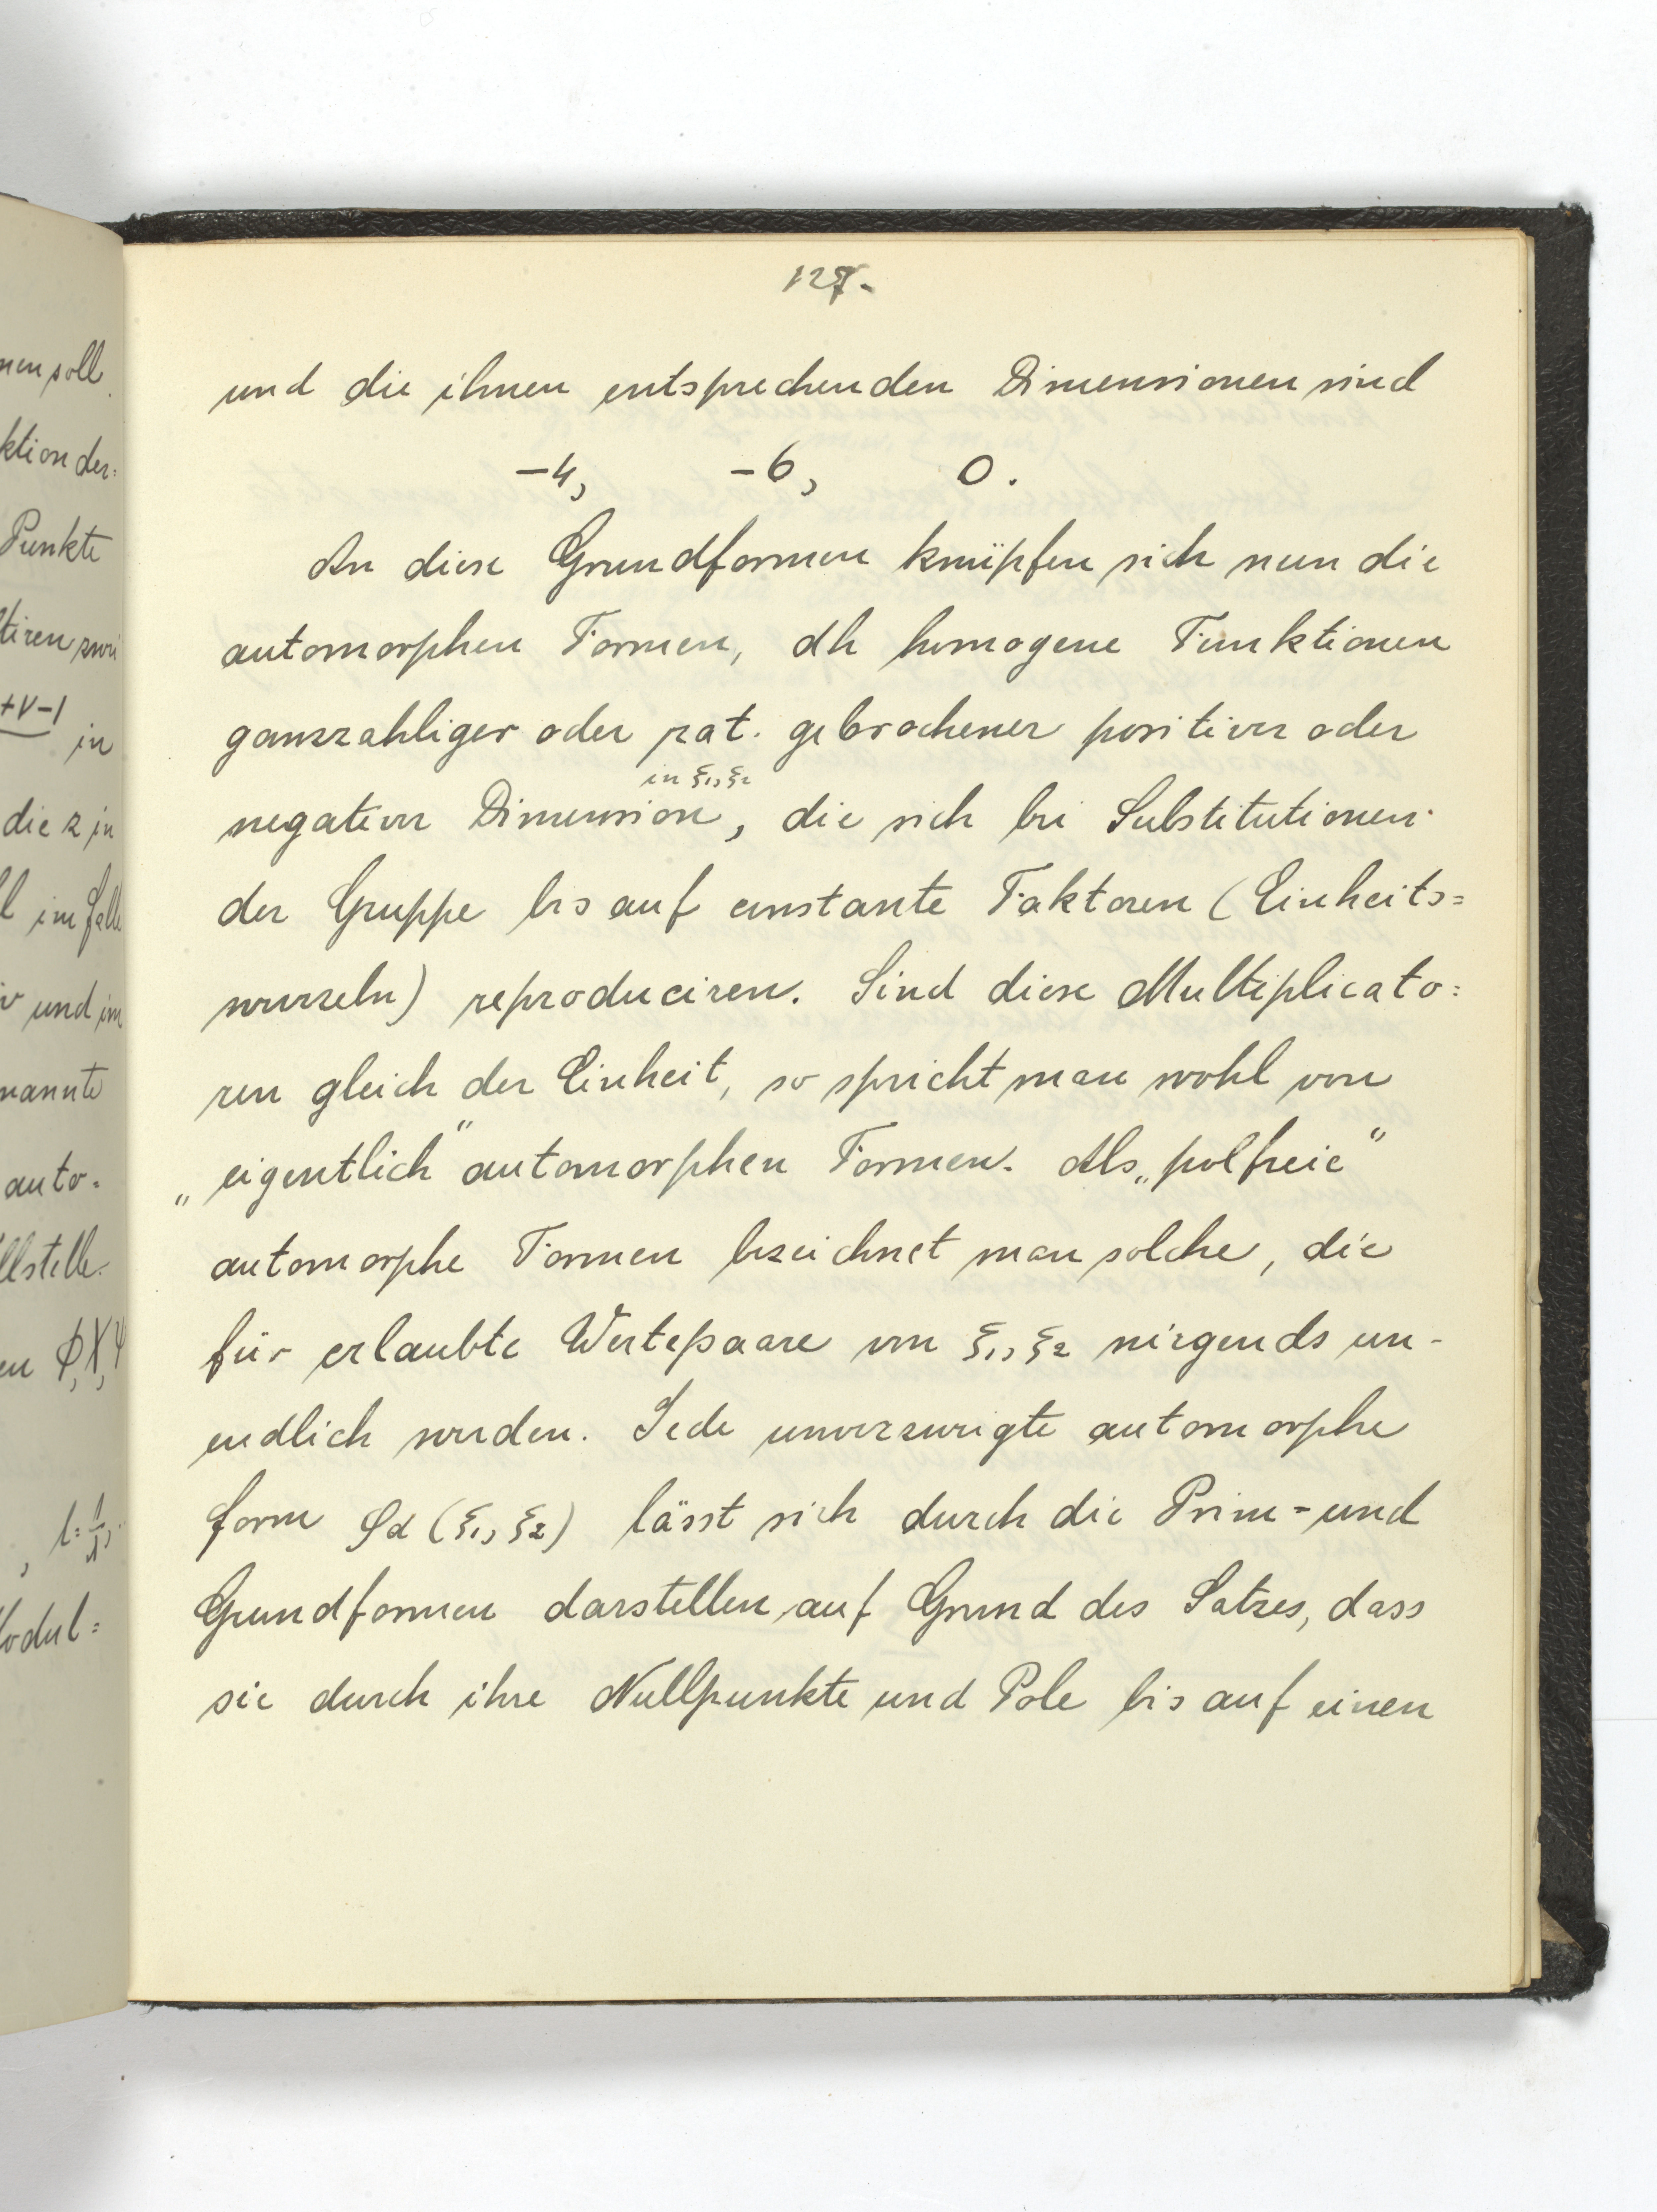 nen soll
ktion der=
Punkte
+ν-1
in
die z in
im Falle
und im
nannte
auto-
llstelle.
Modul=
127.
und die ihnen entsprechenden Dimensionen sind
-4, -6, 0.
An diese Grundformen knüpfen sich nun die
automorphen Formen, dh homogene Funktionen
ganzzahliger oder rat. gebrochener positiver oder
in ξ1, ξ2
negativer Dimension, die sich bei Substitutionen
der Gruppe bis auf constante Faktoren (Einheits=
wurzeln) reproduciren. Sind diese Multiplicato=
ren gleich der Einheit, so spricht man wohl von
„eigentlich“ automorphen Formen. Als „polfreie“
automorphe Formen bezeichnet man solche, die
für erlaubte Wertepaare von ξ1, ξ2 nirgends un-
endlich werden. Jede unverzweigte automorphe
Form φd (ξ1, ξ2) lässt sich durch die Prim- und
Grundformen darstellen auf Grund des Satzes, dass
sie durch ihre Nullpunkte und Pole bis auf einen